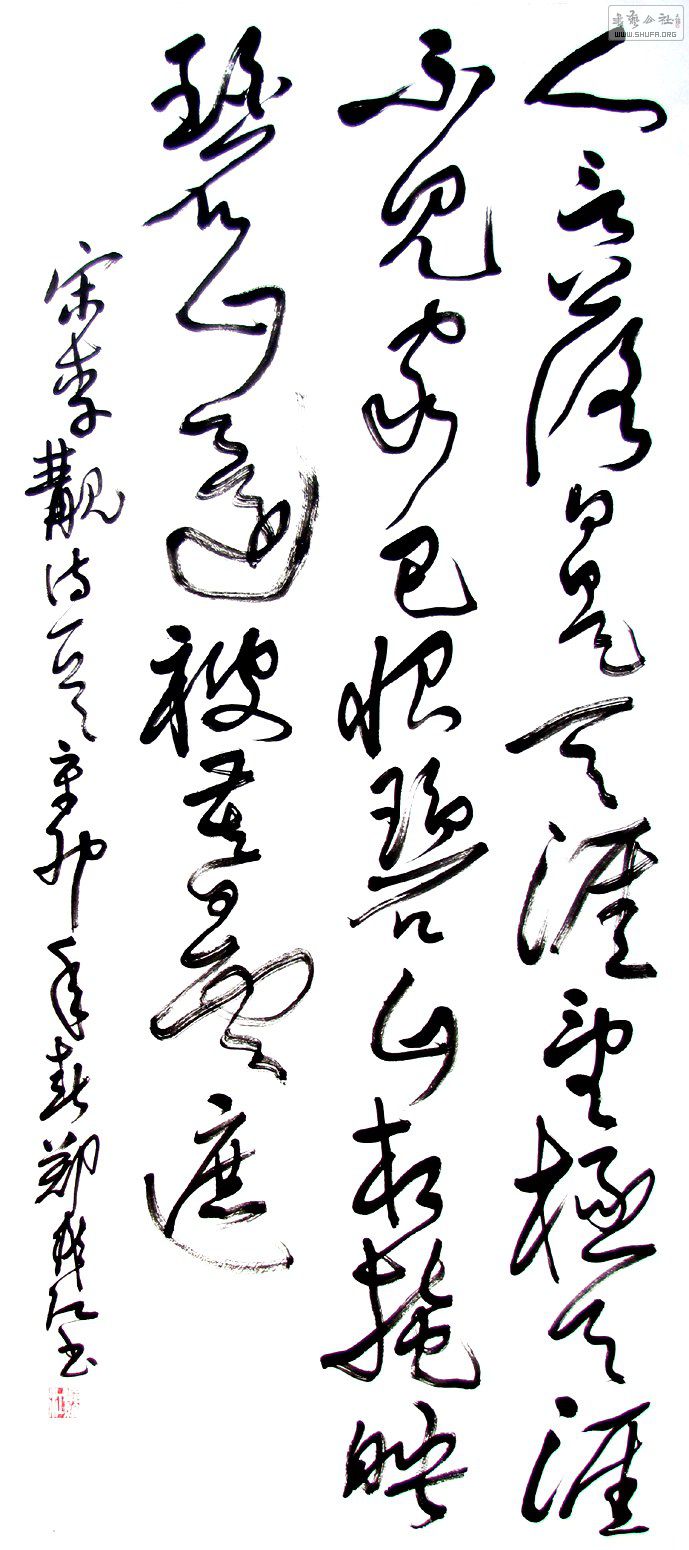 書藝公社
WWW.SHUFA.ORG
人言落日是天涯望极天涯
不见家已恨碧山相掩映
碧山还被暮云遮
宋李觏诗一首辛卯年春郑书